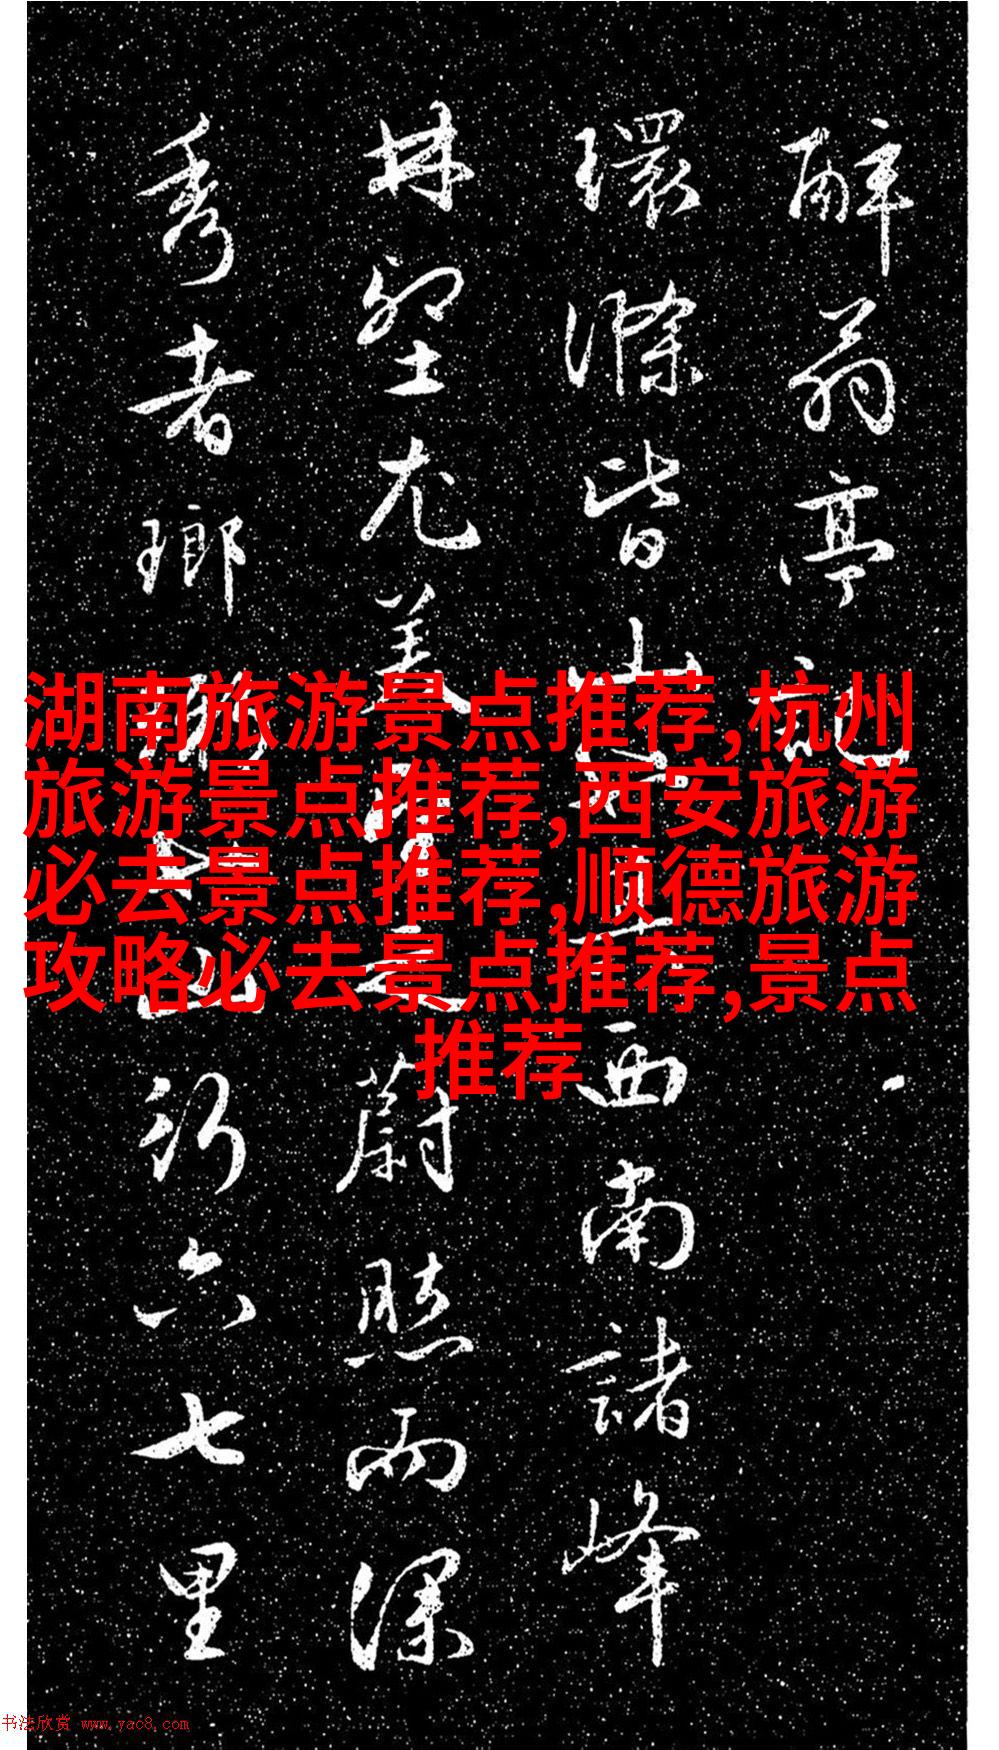 醉翁亭記
環滁皆山也其西南諸峰
林壑尤美望之蔚然而深
秀者瑯琊也山行六七里
湖南旅游景点推荐,杭州
旅游景点推荐,西安旅游
必去景点推荐,顺德旅游
攻略必去景点推荐,景点
推荐
书法欣赏 www.yac8.com